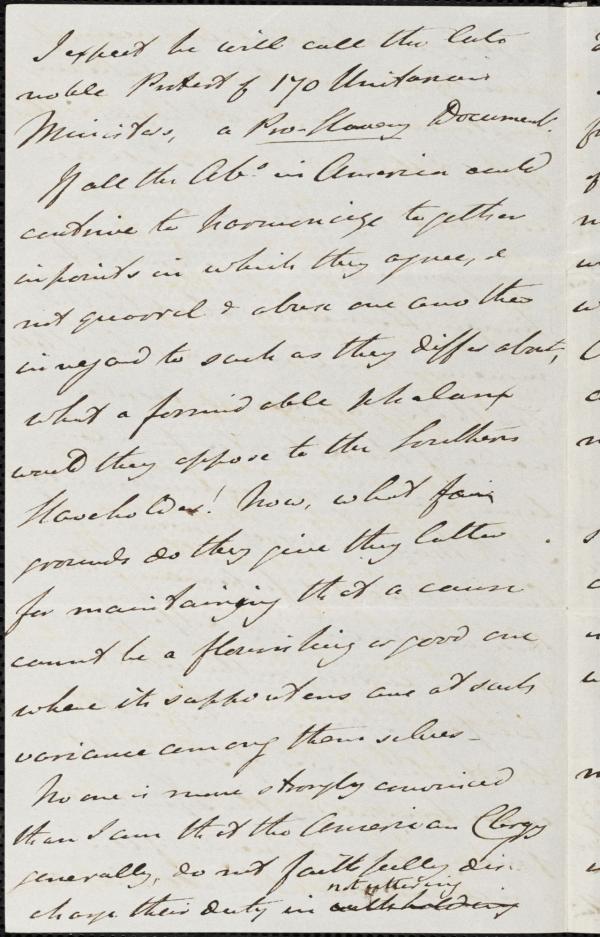 I expect he will call the late
noble Protest of 170 Unitarian
Ministers, a Pro-Slavery Document.
If all the Abs in America could
contrive to harmonize together
in points in which they agree, &
not quarrel & abuse one another
in regard to such as they differ about,
what a formidable phalanx
would they oppose to the Southern
Slaveholder! Now, what fair
grounds do they give they latter
for maintaining that a cause
cannot be a flourishing or good one
where its supporters are at such
variance among themselves –
No one is more strongly convinced
than I am that the American Clergy
generally, do not faithfully dis-
not uttering
charge their duty in withholding